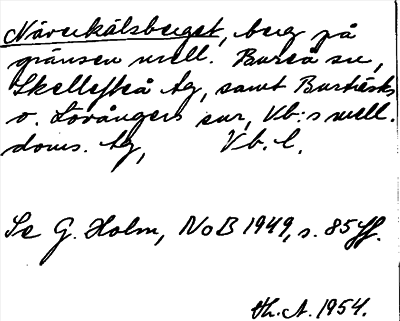 Närvekålsberget, berg på
gränsen mell. Bureå sn,
Skellefteå tg, samt Burträsks
o. Lövångers snr, Vb:s mell.
doms. tg, Vb. l.
Se G. Holm, NoB 1949, s. 85 ff.
th. A. 1954.